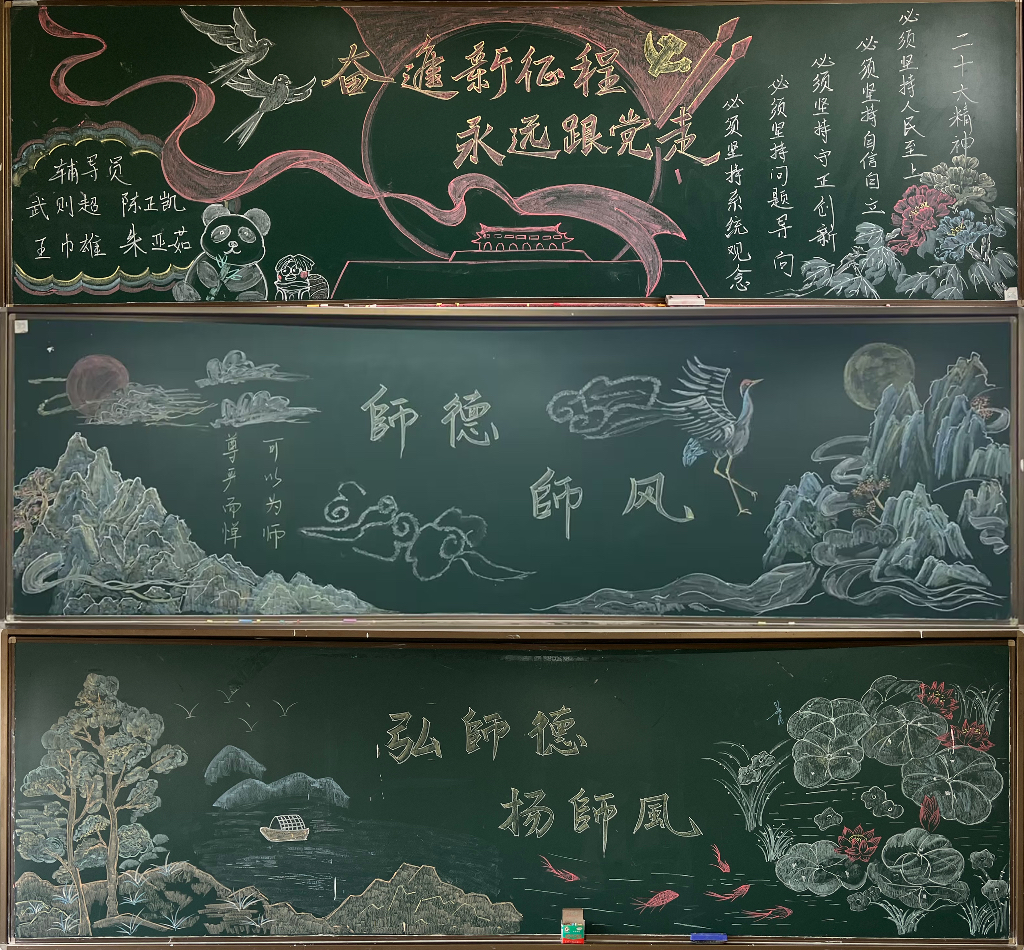 奋進新征程
永远跟党走
辅导员
武则超 陈正凯
王巾雄 朱亚茹
二十大精神
必须坚持人民至上
必须坚持自信自立
必须坚持守正创新
必须坚持问题导向
必须坚持系统观念
師德
師风
可以为师
尊严而惮
弘師德
扬師風